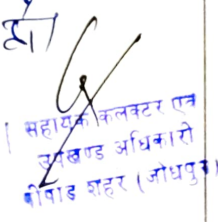 हो।
सहायक कलक्टर एवं
उपखण्ड अधिकारी
पीपाड शहर (जोधपुर)